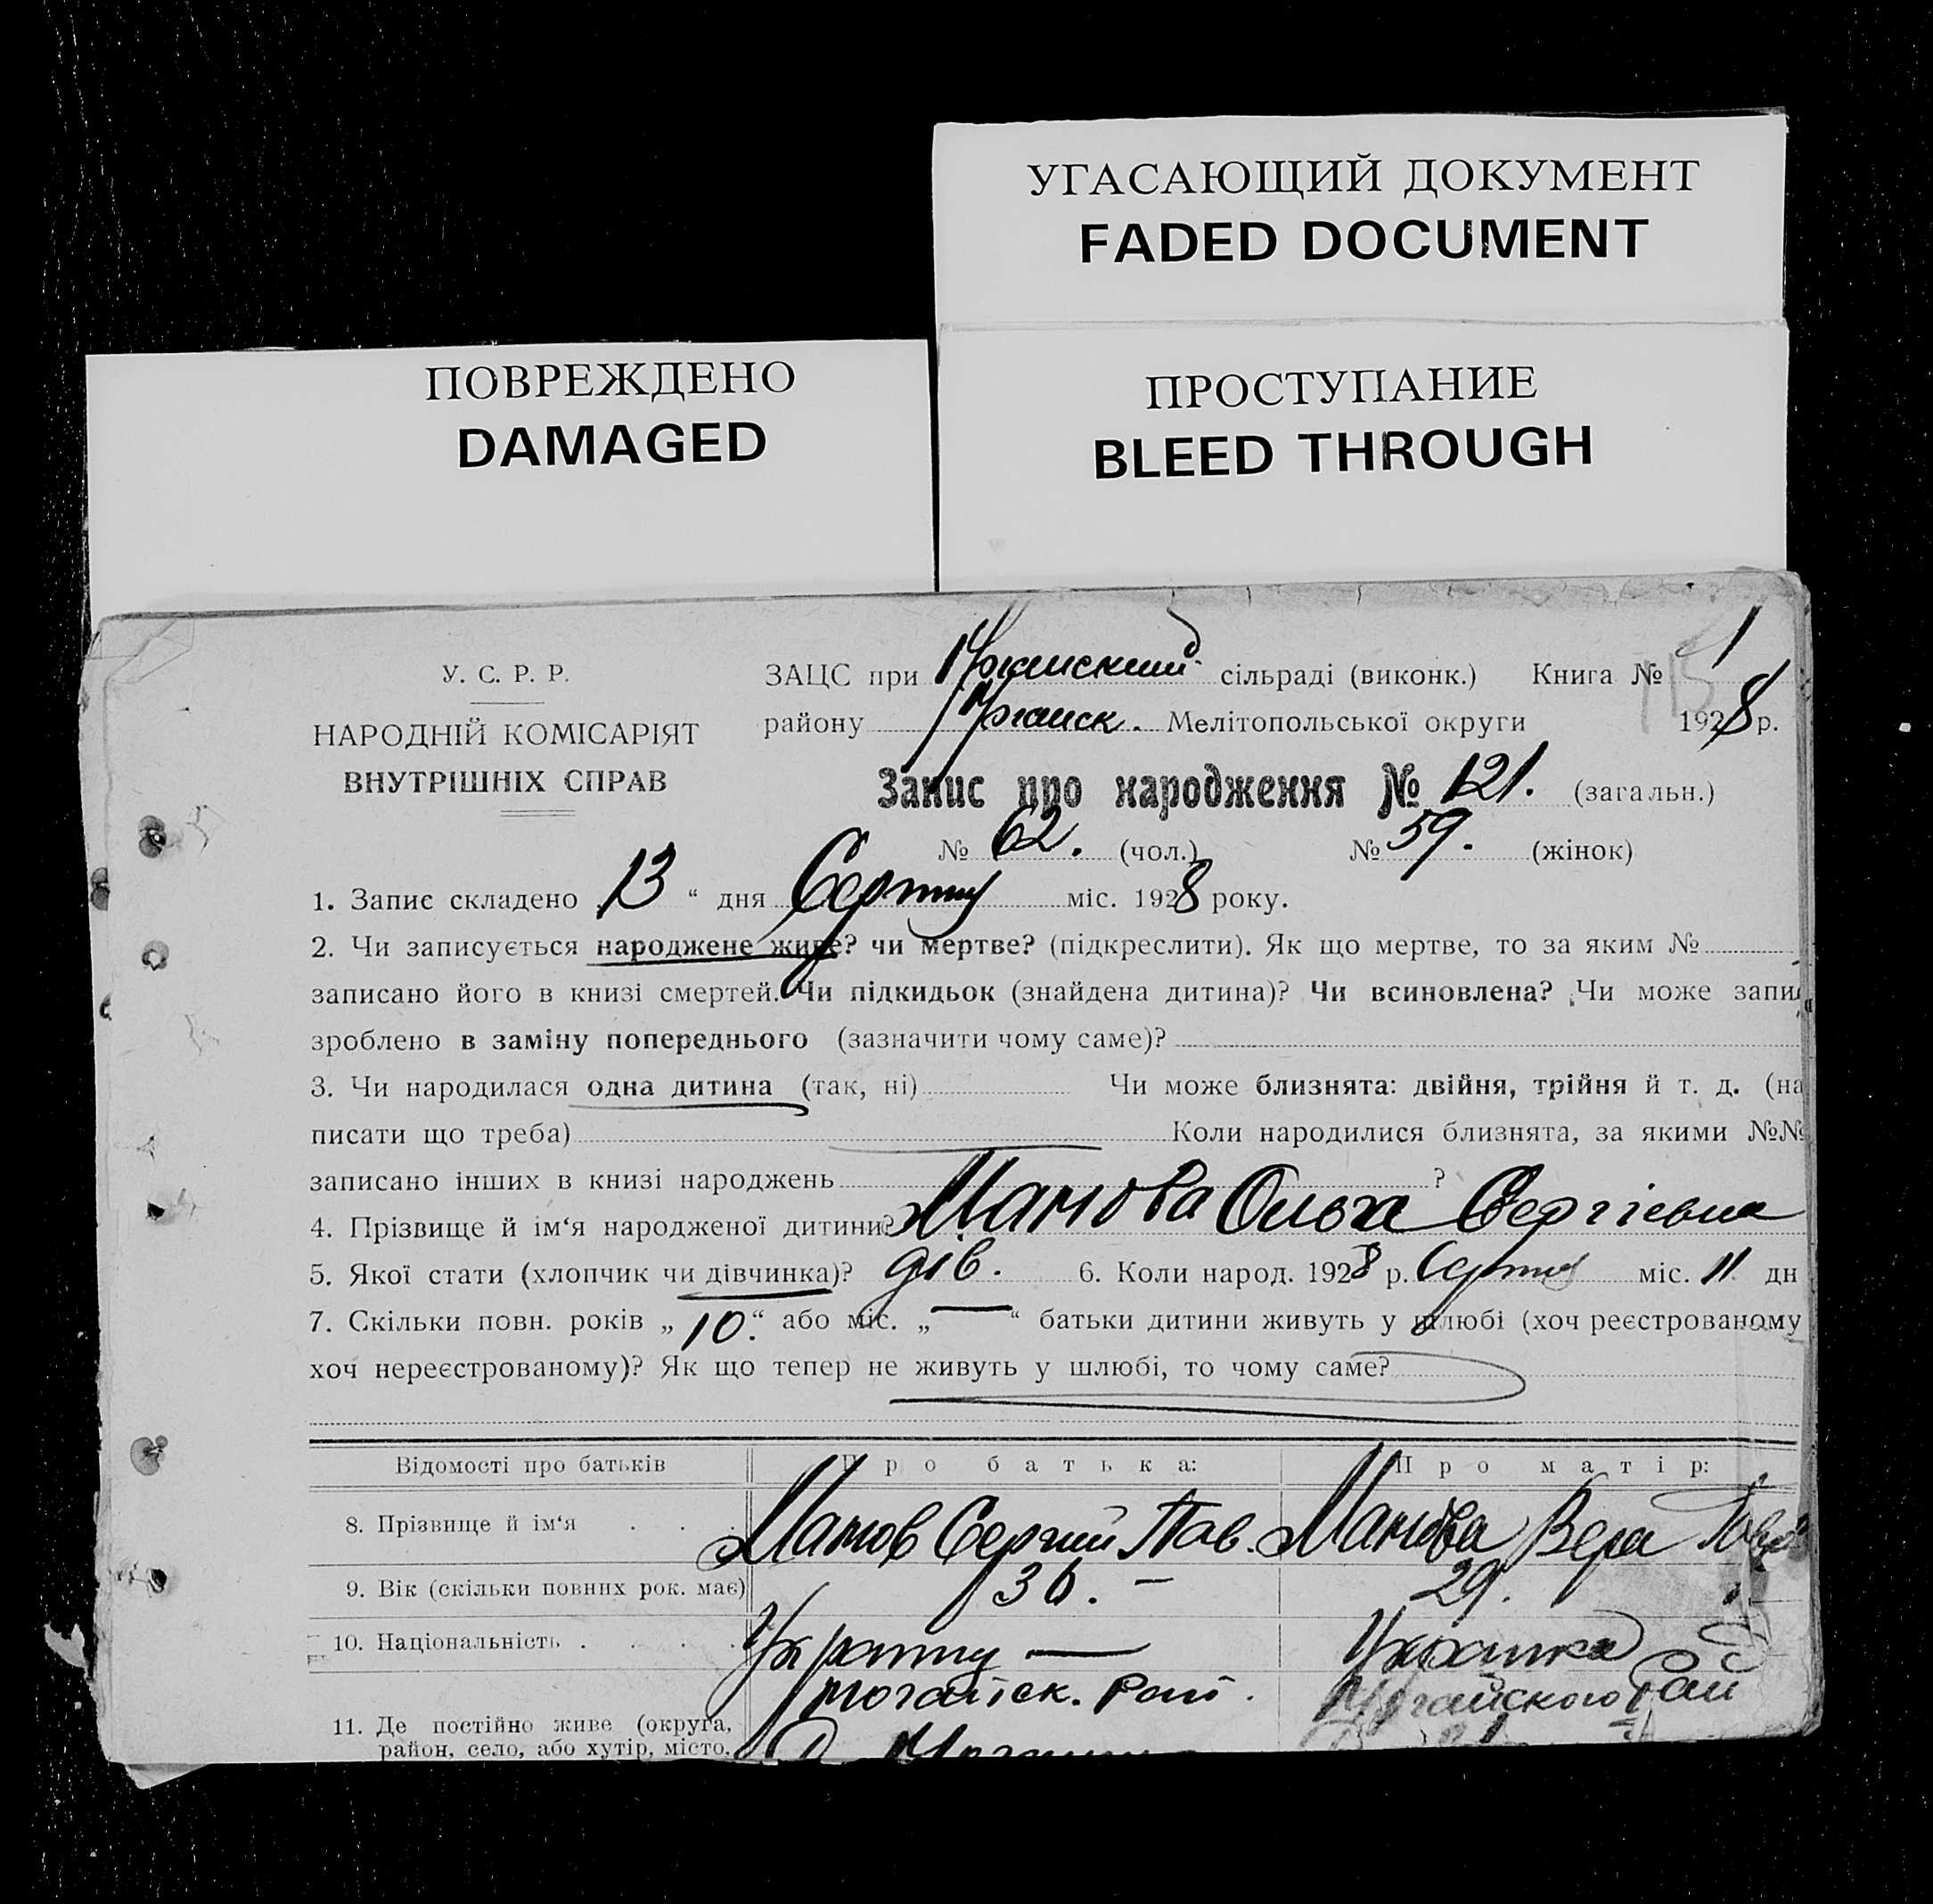 УГАСАЮЩИЙ ДОКУМЕНТ
FADED DOCUMENT
ПОВРЕЖДЕНО
DAMAGED
ПРОСТУПАНИЕ
BLEED THROUGH
У. С. Р. Р.
НАРОДНІЙ КОМІСАРІЯТ
ВНУТРІШНІХ СПРАВ
ЗАЦС при сільраді (виконк.) Книга № 1
району Мелітопольської округи 1928 р.
Запис про народження № 121. (загальн.)
№ 62. (чол.) № 59. (жінок)
1. Запис складено 13 “ дня міс. 1928 року.
2. Чи записується народжене живе? чи мертве? (підкреслити). Як що мертве, то за яким №
записано його в книзі смертей. Чи підкидьок (знайдена дитина)? Чи всиновлена? Чи може
зроблено в заміну попереднього (зазначити чому саме)?
3. Чи народилася одна дитина (так, ні) Чи може близнята: двійня, трійня й т. д. (на
писати що треба) Коли народилися близнята, за якими №№
записано інших в книзі народжень ?
4. Прізвище й ім‘я народженої дитини? Мамова Ольга Сергієвна
5. Якої стати (хлопчик чи дівчинка)? дів. 6. Коли народ. 1928 р. міс. 11 дн
7. Скільки повн. років „ 10.“ або міс. „ — “ батьки дитини живуть у шлюбі (хоч реєстрованому
хоч нереєстрованому)? Як що тепер не живуть у шлюбі, то чому саме?
Відомості про батьків Про батька: Про матір:
8. Прізвище й ім‘я . . . Мамов Сергий Пав. Мамова Вера
9. Вік (скільки повних рок. має) 36. — 29.
10. Національність . . . .
11. Де постійно живе (округа,
район, село, або хутір, місто,